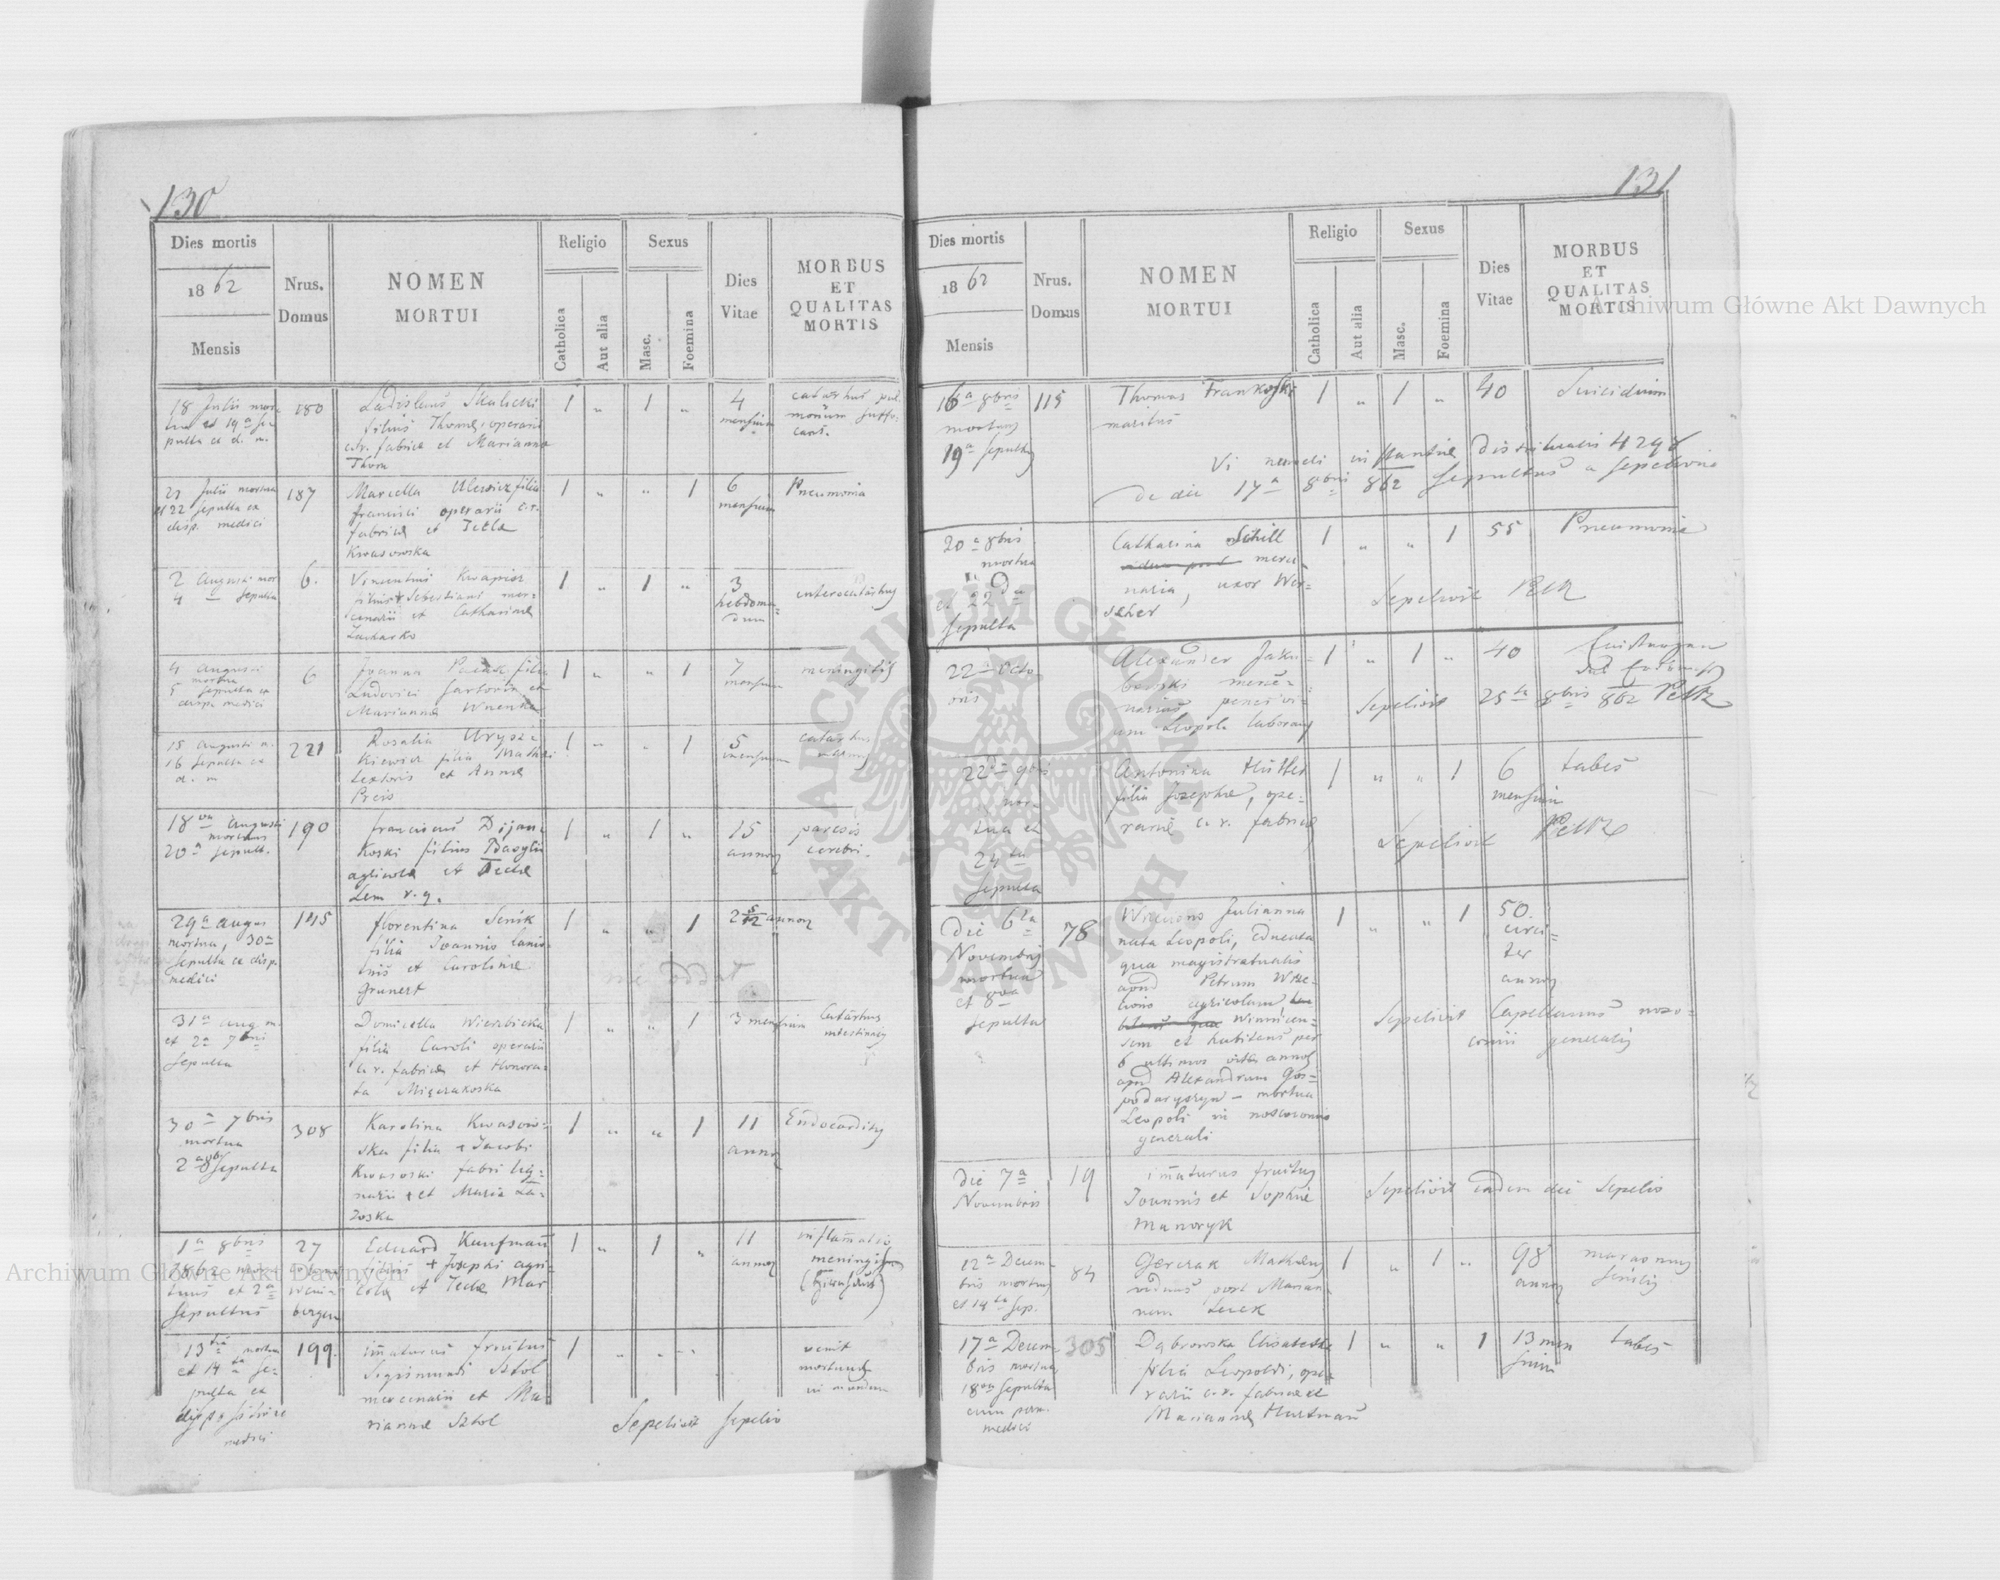 130
Dies mortis
1862
Mensis
Nrus.
Domus
NOMEN
MORTUI
Religio
Catholica
Aut alia
Sexus
Masc.
Foemina
Dies
Vitae
MORBUS
ET
QUALITAS
MORTIS
18 Julii mor-
tuus et 19ª se-
pulta ex d. m.
180
Ladislaus Skalicki
filius Thomæ operarii
c. r. fabricæ et Marianna
Thom
1 „ 1 „
4
mensium
catarrhus pul-
monum suffo-
cans.
21 Julii mortua
et 22 sepulta ex
disp. medici
187
Marcella Ulewicz filia
francisci operarii c. r.
fabricæ et Tecla
Kwasowska
1 „ „ 1
6
mensium
Pneumonia
2 Augusti mor
4 — sepulta
6.
Vincentius Kwapisz
filius Sebestiani mer-
cenarii et Catharinæ
Zacharko
1 „ 1 „
3
hebdoma-
dum
enterocatarrhus
4 Augusti
mortua
5 sepulta ex
disp. medici
6
Joanna filia
Ludovici Sartoris et
Mariannæ Wnenka
1 „ „ 1
7
mensium
meningitis
15 Augusti m.
16 sepulta ex
d. m
221
Rosalia Urysz-
kiewicz filia Mathæi
textoris et Annæ
Preis
1 „ „ 1
5
mensium
catarrhus
18va Augusti
mortuus
20ª sepult.
190
franciscus Dijan-
koski filius Basylii
agricolæ et Teclæ
Lem r. g.
1 „ 1 „
15
annor
paresis
cerebri.
29ª Augus
mortua, 30ª
sepulta ex disp.
medici
145
florentina Senik
filia Joannis lanio-
nis et Carolinæ
Grunert
1 „ „ 1
2 5/12 annor
nie oddał
31ª aug m.
et 2ª 7bris
sepulta
Domicella Wierzbicka
filia Caroli operarii
c. r. fabricæ et Honora-
ta Mięrzakoska
1 „ „ 1
3 mensium
Catarrhus
intestinalis
30ª 7bris
mortua
2ª 8bris sepulta
308
Karolina Kwasow-
ska filia + Jacobi
Kwasoski fabri lig-
narii + et Maria La-
zoska
1 „ „ 1
11
annor
Endocarditis
1ª 8bris
1862 mor-
tuus et 2ª
sepultus
27
colonia
weinbergen
Eduard Kaufmañ
filius + Josephi agri-
colæ et Teclæ Mar
1 „ 1 „
11
annor
inflamatio
meningis
13tia mortua
et 14ta se-
pulta ex
medici
199.
imaturus fructus
Sigismundi Sztol
mercenarii et Ma-
riannæ Sztol
1 „ „ „
venit
mortuus
in mundum
Sepelivit Sepelio
131
Dies mortis
1862
Mensis
Nrus.
Domus
NOMEN
MORTUI
Religio
Catholica
Aut alia
Sexus
Masc.
Foemina
Dies
Vitae
MORBUS
ET
QUALITAS
MORTIS
16ª 8bris
mortuus
19ª sepultus
115
Thomas Frankoski
maritus
1 „ 1 „
40
Suicidium
Vi instantiæ districtualis 4298
de die 17ª 8bris 862 sepultus a Sepelivio
20ª 8bris
mortua
et 22da
sepulta
Catharina Schill
merce-
naria, uxor Wer-
scher
1 „ „ 1
55
Pneumonia
Sepelivit Peltz
22da Octo
bris
Alexander Jaku-
bowski merce-
narius penes vi-
am Leopoli laborans
1 „ 1 „
40
Sepelivit 25ta 8bris 862 Peltz
22da 9bris
mor-
tua et
24ta
sepulta
Antonina Hütter
filia Josephæ, ope-
rariæ c. r. fabricæ
1 „ „ 1
6
mensium
tabes
Sepelivit Peltz
Die 6ta
Novembris
mortua
et 8va
sepulta
78
Julianna
nata Leopoli, educata
qua magistratualis
apud Petrum Wrze-
agricolam
Winnicen-
sem et habitans per
6 ultimos vitæ annos
apud Alexandrum Gos-
podaryszyn – mortua
Leopoli in noscomio
generali
1 „ „ 1
50.
circi-
ter
annor
Sepelivit Capellanus noso-
comii generalis
Die 7ª
Novembris
19
imaturus fructus
Joannis et Sophiæ
Manoryk
Sepelivit eadem die Sepelio
12ª Decem-
bris mortuus
et 14ta sep.
84
Gerczak Mathæus
viduus post Marian-
nam Lucek
1 „ 1 „
98
annor
marasmus
senilis
17ª Decem-
bris mortua
18va sepulta
cum perm.
medici
305
Dąbrowska Elisabetha
filia Leopoldi, ope-
rarii c. r. fabricæ et
Mariannæ Hartmañ
1 „ „ 1
13 men
sium
tabes
Archiwum Główne Akt Dawnych
Archiwum Główne Akt Dawnych
ARCHIWUM GŁÓWNE
AKT DAWNYCH